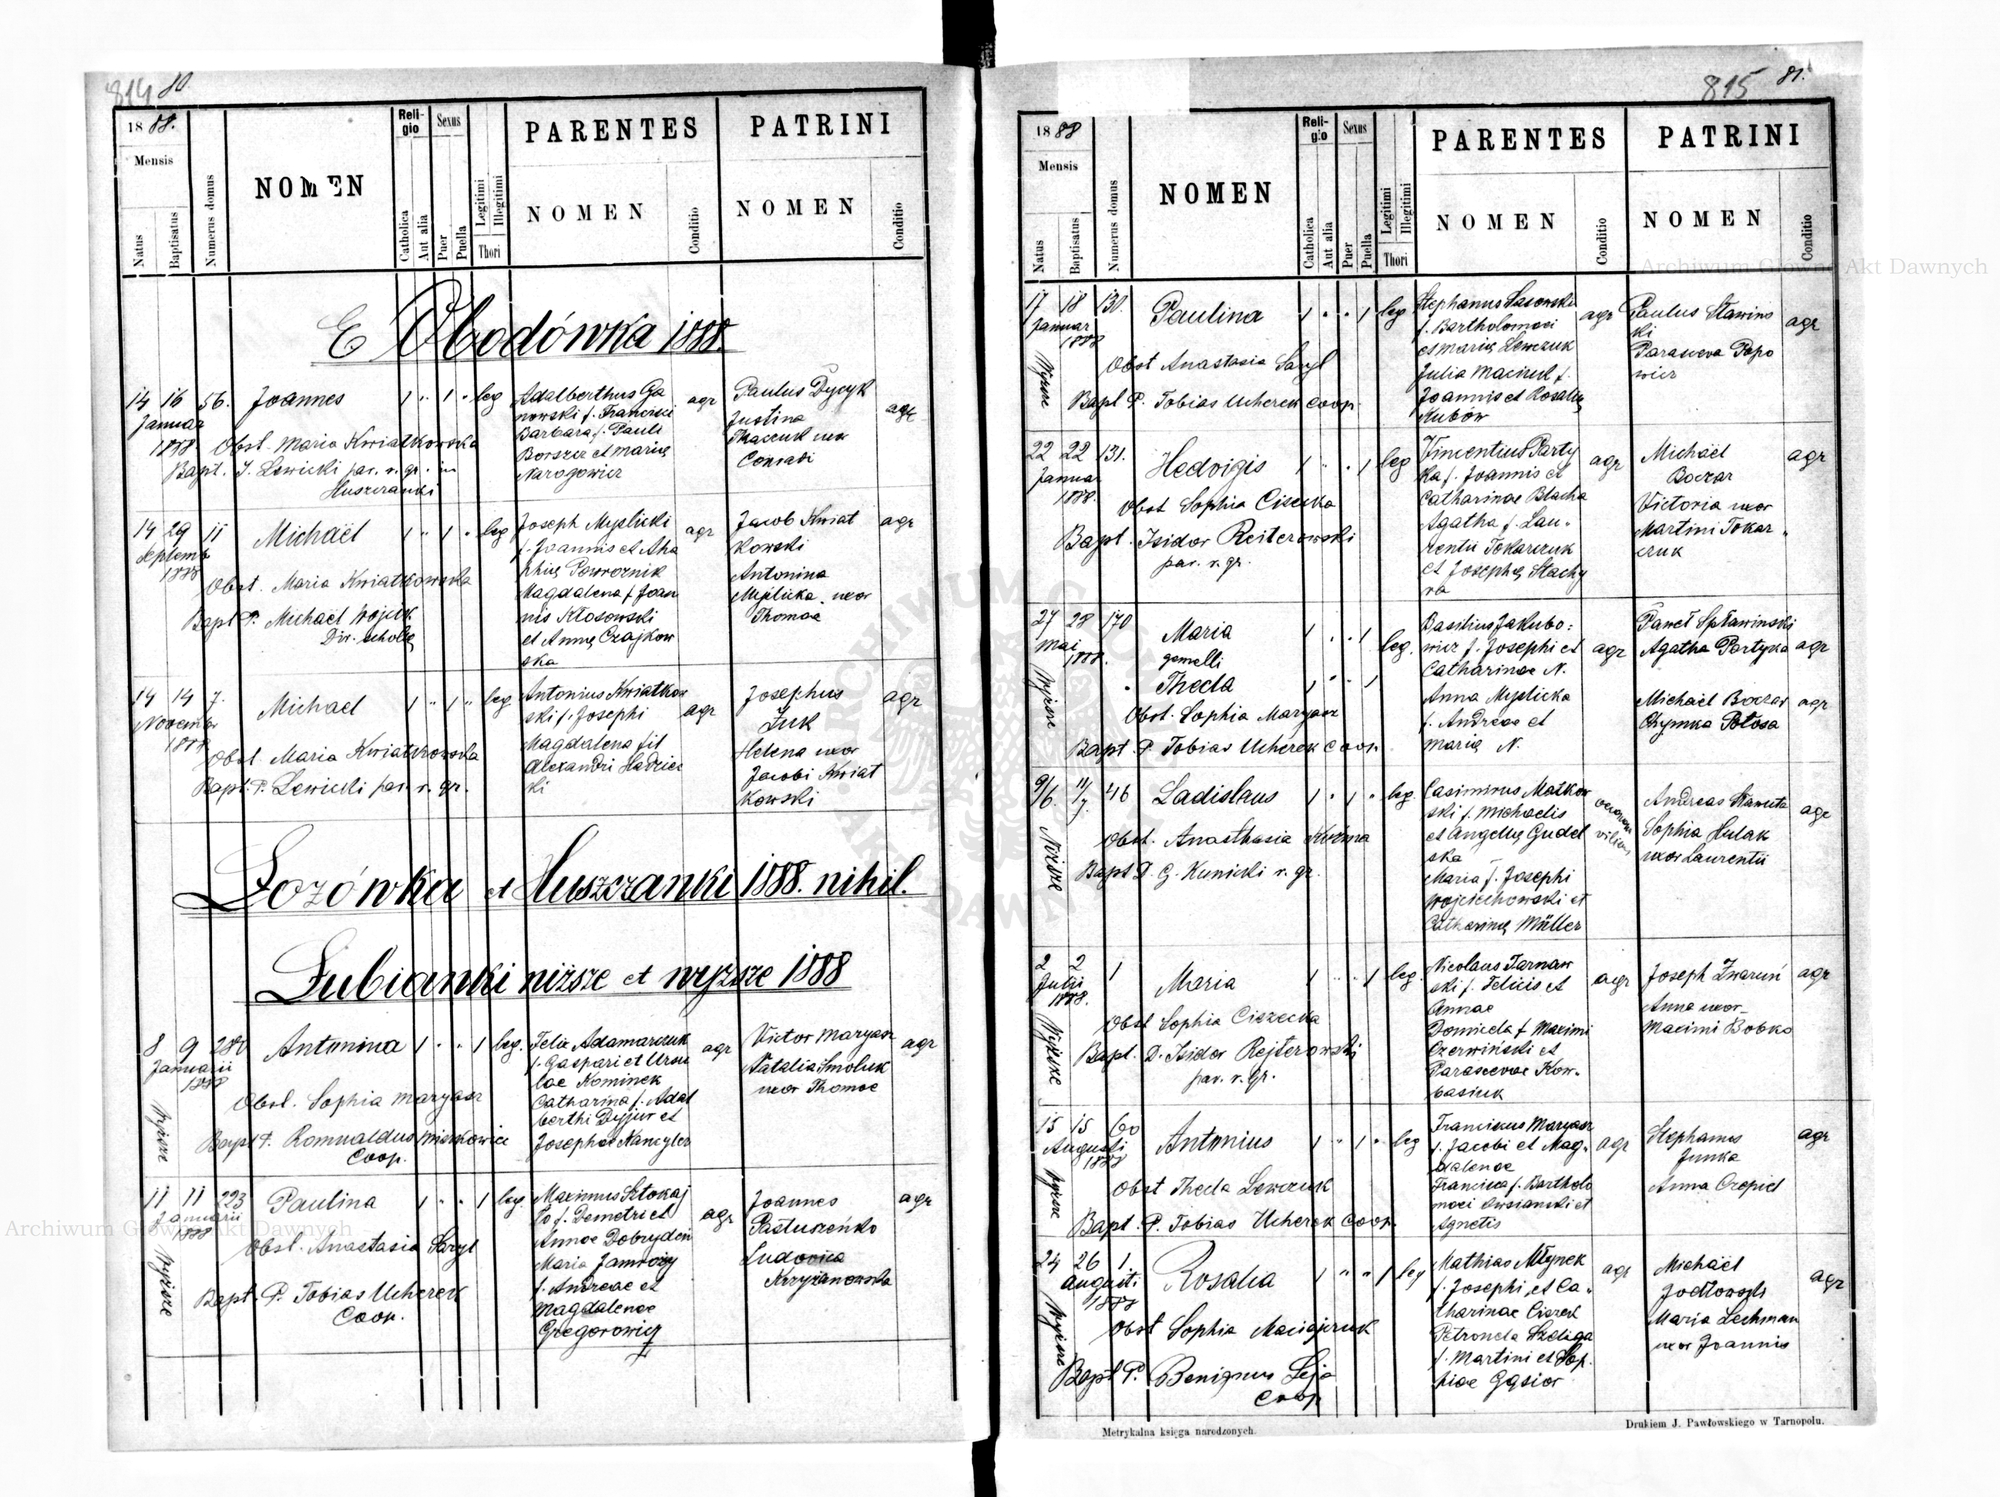 814 80
1888.
Mensis
Natus
Baptisatus
Numerus domus
NOMEN
Religio
Catholica
Aut alia
Sexus
Puer
Puella
Legitimi
Illegitimi
Thori
PARENTES
NOMEN
Conditio
PATRINI
NOMEN
Conditio
E Obodówka 1888.
14 16 56. Joannes 1 " 1 " leg
Januar
1888.
Obst. Maria Kwiatkowska
Bapt. J. Lewicki par. r. gr. in
Huszczanki
Adalberthus Ga
nowski f. Francisci
Barbara f. Pauli
Borszcz et Marię
Narogowicz
agr
Paulus Dycyk
Justina
uxor
Conradi
agr
14 29 11 Michaël 1 " 1 " leg
Septemb
1888
Obst. Maria Kwiatkowska
Bapt P. Michaël Wojcik
Dir. scholę
Joseph Myslicki
f. Joannis et Aha
phię Powroznik
Magdalena f Joan
nis Kłosowski
et Annę Czajkow
ska
agr
Jacob Kwiat
kowski
Antonina
Myslicka uxor
Thomae
agr
14 14 7. Michael 1 " 1 " leg
Novemb
1888
Obst Maria Kwiatkowska
Bapt. P. Lewicki par. r. gr.
Antonius Kwiatkow
ski f. Josephi
Magdalena fil
Alexandri Hadzic
ki
agr
Josephus
Żuk
Helena uxor
Jacobi Kwiat
kowski
agr
Łozówka et Huszczanki 1888. nihil.
Łubianki niższe et wyższe 1888
8 9 280 Antonina 1 " " 1 leg.
Januarii
1888
Wyższe
Obst. Sophia Maryasz
Bapt P. Romualdus
Coop.
Felix Adamarczuk
f. Gaspari et Ursu
lae Kominek
Catharina f. Adal
berthi Dyjur et
Josephae
agr
Victor Maryasz
Natalia Smoluk
uxor Thomae
agr
11 11 293 Paulina 1 " " 1 leg.
Januarii
1888
Wyższe
Obst. Anastasia Saryl
Bapt. P. Tobias Ucherek
Coop.
Maximus Sztokaj
ło f. Demetri et
Annae Dobrydeń
Maria Jamroży
f. Andreae et
Magdalenae
Gregorowicz
agr
Joannes
Pastuszeńko
Ludovica
Krzyżanowska
agr
815 81.
1888
Mensis
Natus
Baptisatus
Numerus domus
NOMEN
Religio
Catholica
Aut alia
Sexus
Puer
Puella
Legitimi
Illegitimi
Thori
PARENTES
NOMEN
Conditio
PATRINI
NOMEN
Conditio
17 18 130. Paulina 1 " " 1 leg
Januar
1888
Wyższe
Obst Anastasia Saryl
Bapt P. Tobias Ucherek Coop.
Stephanus Sasowski
f. Bartholomaei
et Marię Lewczuk
Julia Maciuk f.
Joannis et Rosalię
Kubów
agr
Paulus Sławins
ki
Parasceva Popo
wicz
agr
22 22 131. Hedvigis 1 " " 1 leg
Januar
1888.
Obst Sophia Ciszecka
Bapt. Isidor Reiterowski
par. r. gr.
Vincentius Party
ka f. Joannis et
Catharinae Blacha
Agatha f. Lau-
rentii Tokarczuk
et Josephę Stachy
ra
agr
Michaël
Boczar
Victoria uxor
Martini Tokar-
czuk
agr
27 28 170 Maria 1 " " 1 leg.
Mai
1888.
gemelli
Thecla 1 " " 1
Wyższe
Obst. Sophia Maryasz
Bapt P. Tobias Ucherek Coop.
Basilius Jakubo:
wicz f. Josephi et
Catharinae N.
Anna Myslicka
f. Andreae et
Marię N.
agr
Paweł Spławinski
Agatha Partyka
agr
Michaël Boczar
Chymka Połosa
agr
9/6 11/7 46 Ladislaus 1 " 1 " leg
Niższe
Obst. Anasthasia Kuźma
Bapt D. G. Kunicki r. gr.
Casimirus Małkow
ski f. Michaelis
et Angelię Gudel
ska
Maria f. Josephi
Wojciechowski et
Catharinę Müller
Andreas Stawuta
Sophia Hulak
uxor Laurentii
agr
2 2 1 Maria 1 " " 1 leg.
Julii
1888.
Wyższe
Obst Sophia Ciszecka
Bapt. D. Isidor Rejterowski
par. r. gr.
Nicolaus Tarnaw
ski f. Felicis et
Annae
Domicela f Maximi
Czerwiński et
Parascevae Kow-
basiuk
agr
Joseph Zwaruń
Anna uxor
Maximi Bobko
agr
15 15 60 Antonius 1 " 1 " leg
Augusti
1888
Wyższe
Obst Thecla Lewczuk
Bapt. P. Tobias Ucherek Coop.
Franciscus Maryasz
f. Jacobi et Mag-
dalenae
Francisca f. Bartholo
maei Owsianski et
Agnetis
agr
Stephanus
Junka
Anna Czepiel
agr
24 26 1. Rosalia 1 " " 1 leg
Augusti
1888
Wyższe
Obst Sophia Maciejczuk
Bapt P. Benignus Leja
Coop
Mathias Młynek
f. Josephi et Ca-
tharinae Ciszek
Petronela Szeliga
f. Martini et Sop-
hiae Gąsior
agr
Michaël
Jodłowski
Maria Lechman
uxor Joannis
agr
Metrykalna księga narodzonych.
Drukiem J. Pawłowskiego w Tarnopolu.
Archiwum Główne Akt Dawnych
Archiwum Główne Akt Dawnych